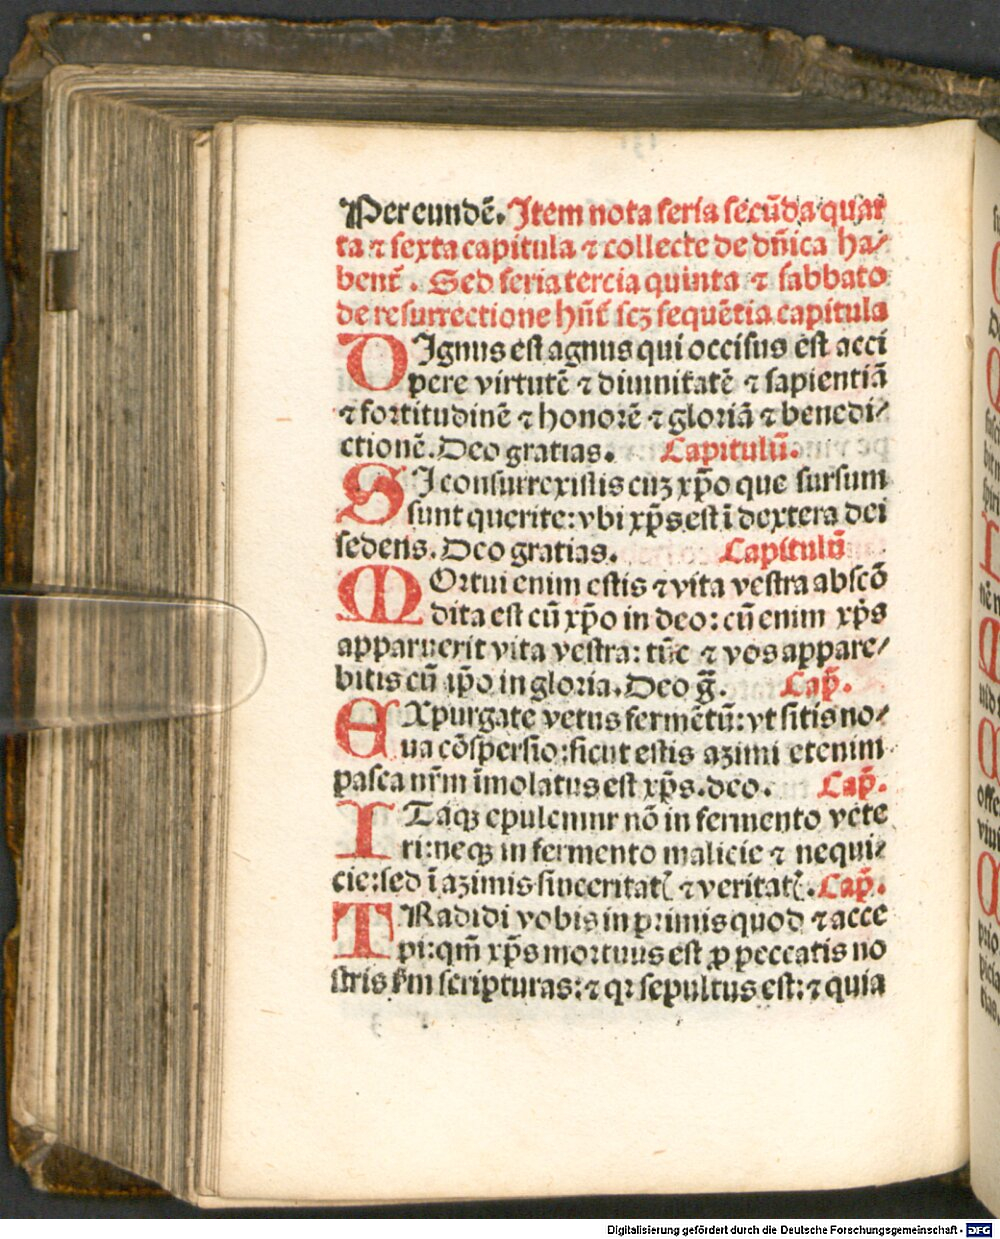 Per eundē. Item nota feria secūda quar
ta ⁊ sexta capitula ⁊ collecte de dñica ha⸗
bent̄. Sed feria tercia quinta ⁊ sabbato
de resurrectione hñt̄ scꝫ sequētia capitula
DIgnus est agnus qui occisus est acci
pere virtutē ⁊ diuinitatē ⁊ sapientiā
⁊ fortitudinē ⁊ honorē ⁊ gloriā ⁊ benedi⸗
ctionē. Deo gratias. Capitulū.
SI consurrexistis cuꝫ xp̄o que sursum
sunt querite: vbi xp̄s est ī dextera dei
sedens. Deo gratias. Capitulū
MOrtui enim estis ⁊ vita vestra abscō
dita est cū xp̄o in deo: cū enim xp̄s
apparuerit vita vestra: tūc ⁊ vos appare⸗
bitis cū ip̄o in gloria. Deo g̃. Cap̄.
EXpurgate vetus fermētū: vt sitis no⸗
ua cōspersio: sicut estis azimi etenim
pasca nr̄m īmolatus est xp̄s. deo. Cap̄.
ITaqꝫ epulemur nō in fermento vete
ri: neqꝫ in fermento malicie ⁊ nequi⸗
cie: sed ī azimis sinceritatꝭ ⁊ veritatꝭ. Cap̄.
TRadidi vobis in primis quod ⁊ acce
pi: qm̄ xp̄s mortuus est ꝓ peccatis no
stris ẜm scripturas: ⁊ qꝛ sepultus est: ⁊ quia
Digitalisierung gefördert durch die Deutsche Forschungsgemeinschaft - DFG